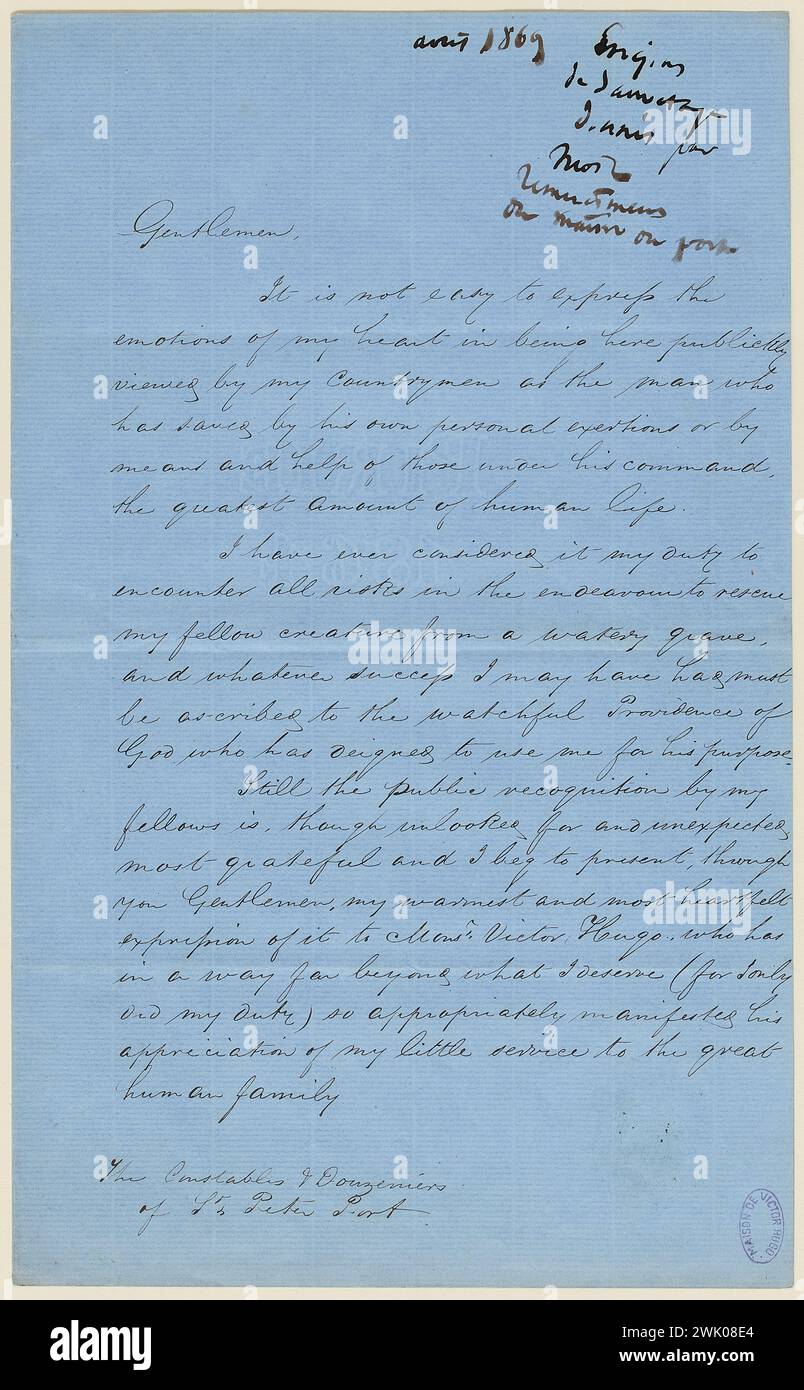 avril 1869
Engins
de sauvetage
donnés par
moi
remerciemens
Gentlemen,
It is not easy to express the
emotions of my heart in being here publickly
viewed by my Countrymen as the man who
has saved by his own personal exertions or by
means and help of those under his command,
the greatest amount of human life.
I have ever considered it my duty to
encounter all risks in the endeavour to rescue
my fellow creature from a watery grave,
and whatever success I may have had must
be ascribed to the watchful Providence of
God who has deigned to use me for his purpose.
Still the public recognition by my
fellows is, though unlooked for and unexpected,
most grateful and I beg to present, through
you Gentlemen, my warmest and most heartfelt
expression of it to Monsr. Victor Hugo, who has
in a way far beyond what I deserve (for I only
did my duty) so appropriately manifested his
appreciation of my little service to the great
human family
The Constables & Douzeniers
of St. Peter Port
MAISON DE VICTOR HUGO
alamy
a
alamy
Image ID: 2WK08E4
www.alamy.com